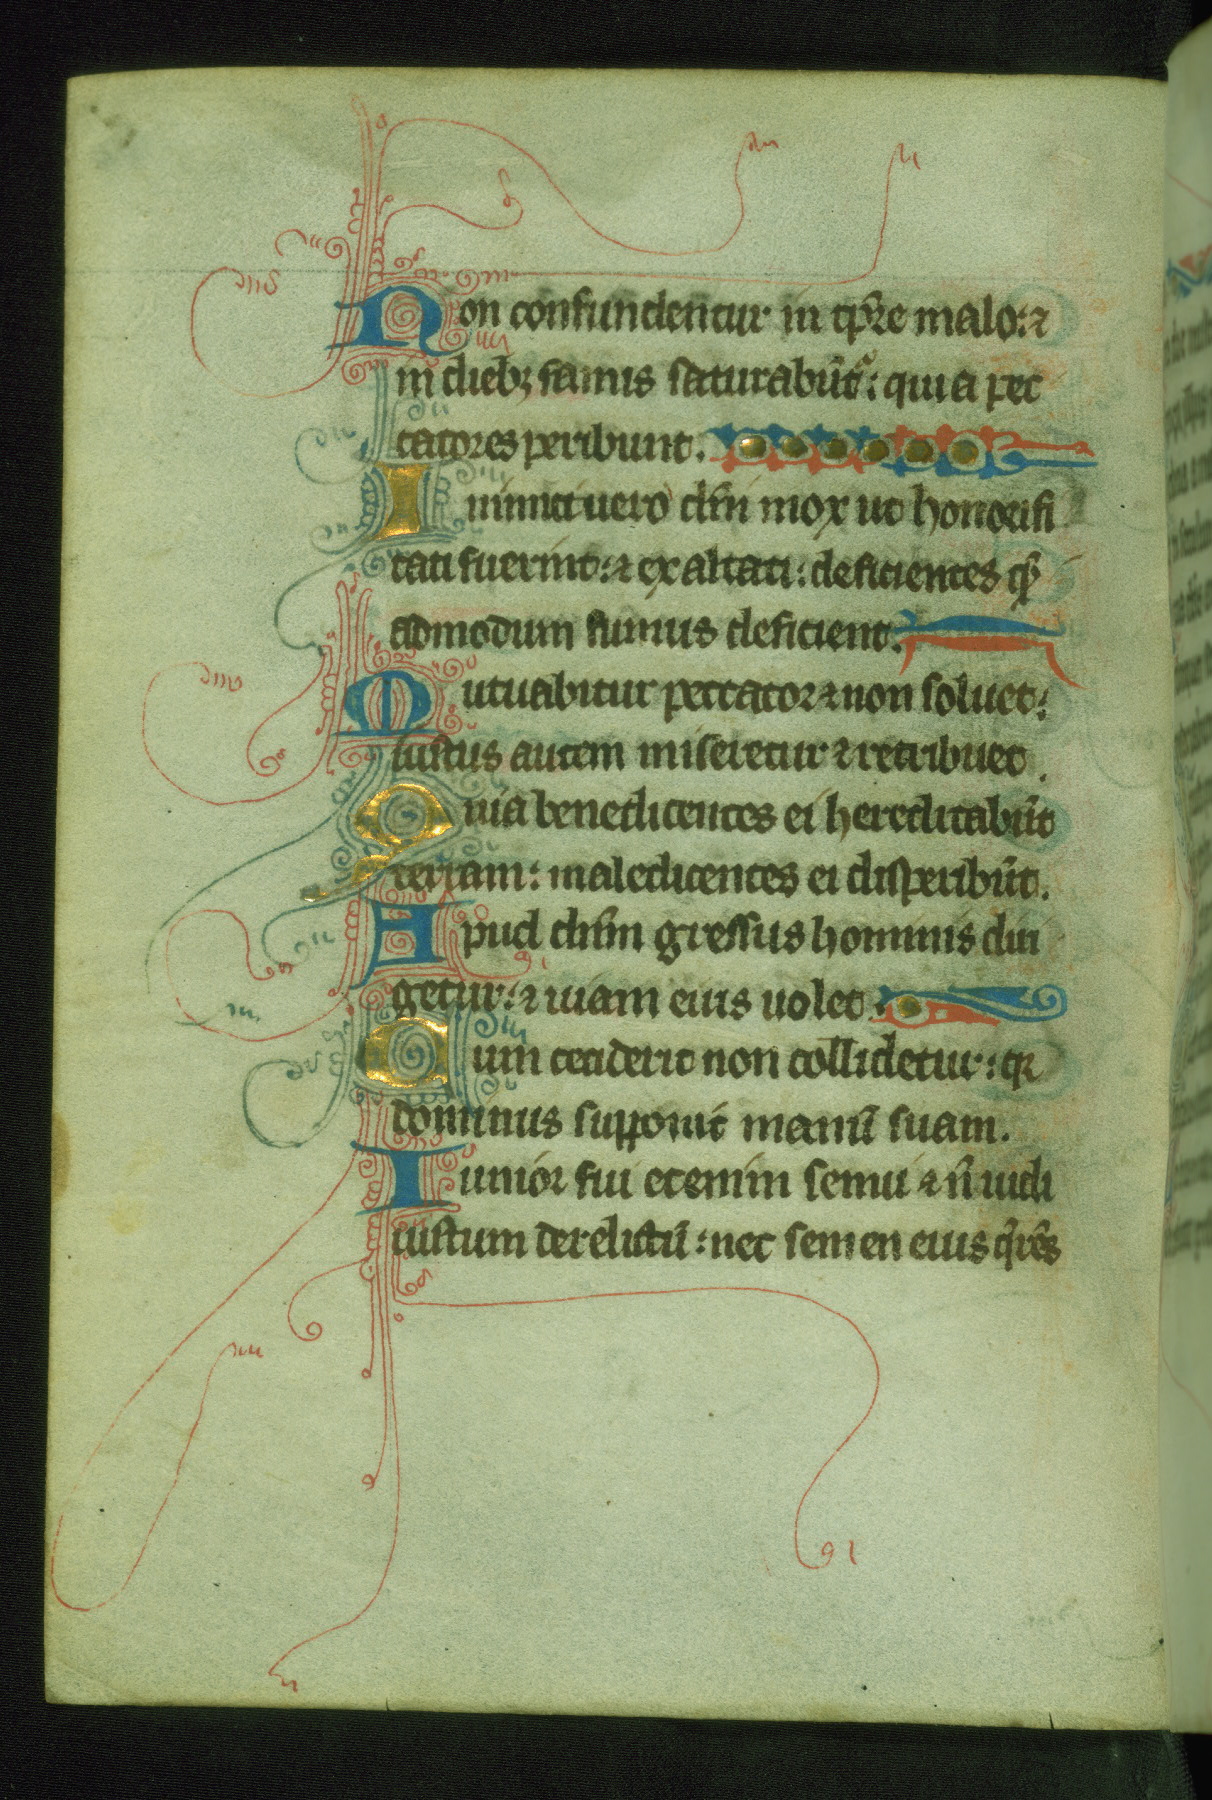 Non confundentur in tp̄re malo: ⁊
in dieb; famis saturabūt᷑: quia pec
catores peribunt.
Inimici uero dn̄i mox ut honorifi
cati fuerint: ⁊ exaltati: deficientes qͣ
admodum fumus deficient.
Mutuabitur peccator ⁊ non soluet:
iustus autem miseretur ⁊ retribuet.
Quia benedicentes ei hereditabūt
terram: maledicentes ei disperibūt.
Apud dn̄m gressus hominis diri
getur: ⁊ uiam eius uolet.
Cum ceciderit non collidetur: qꝛ
dominus supponit manū suam.
Iunior fui etenim senui ⁊ n̄ uidi
iustum derelictū: nec semen eius q̄rēs